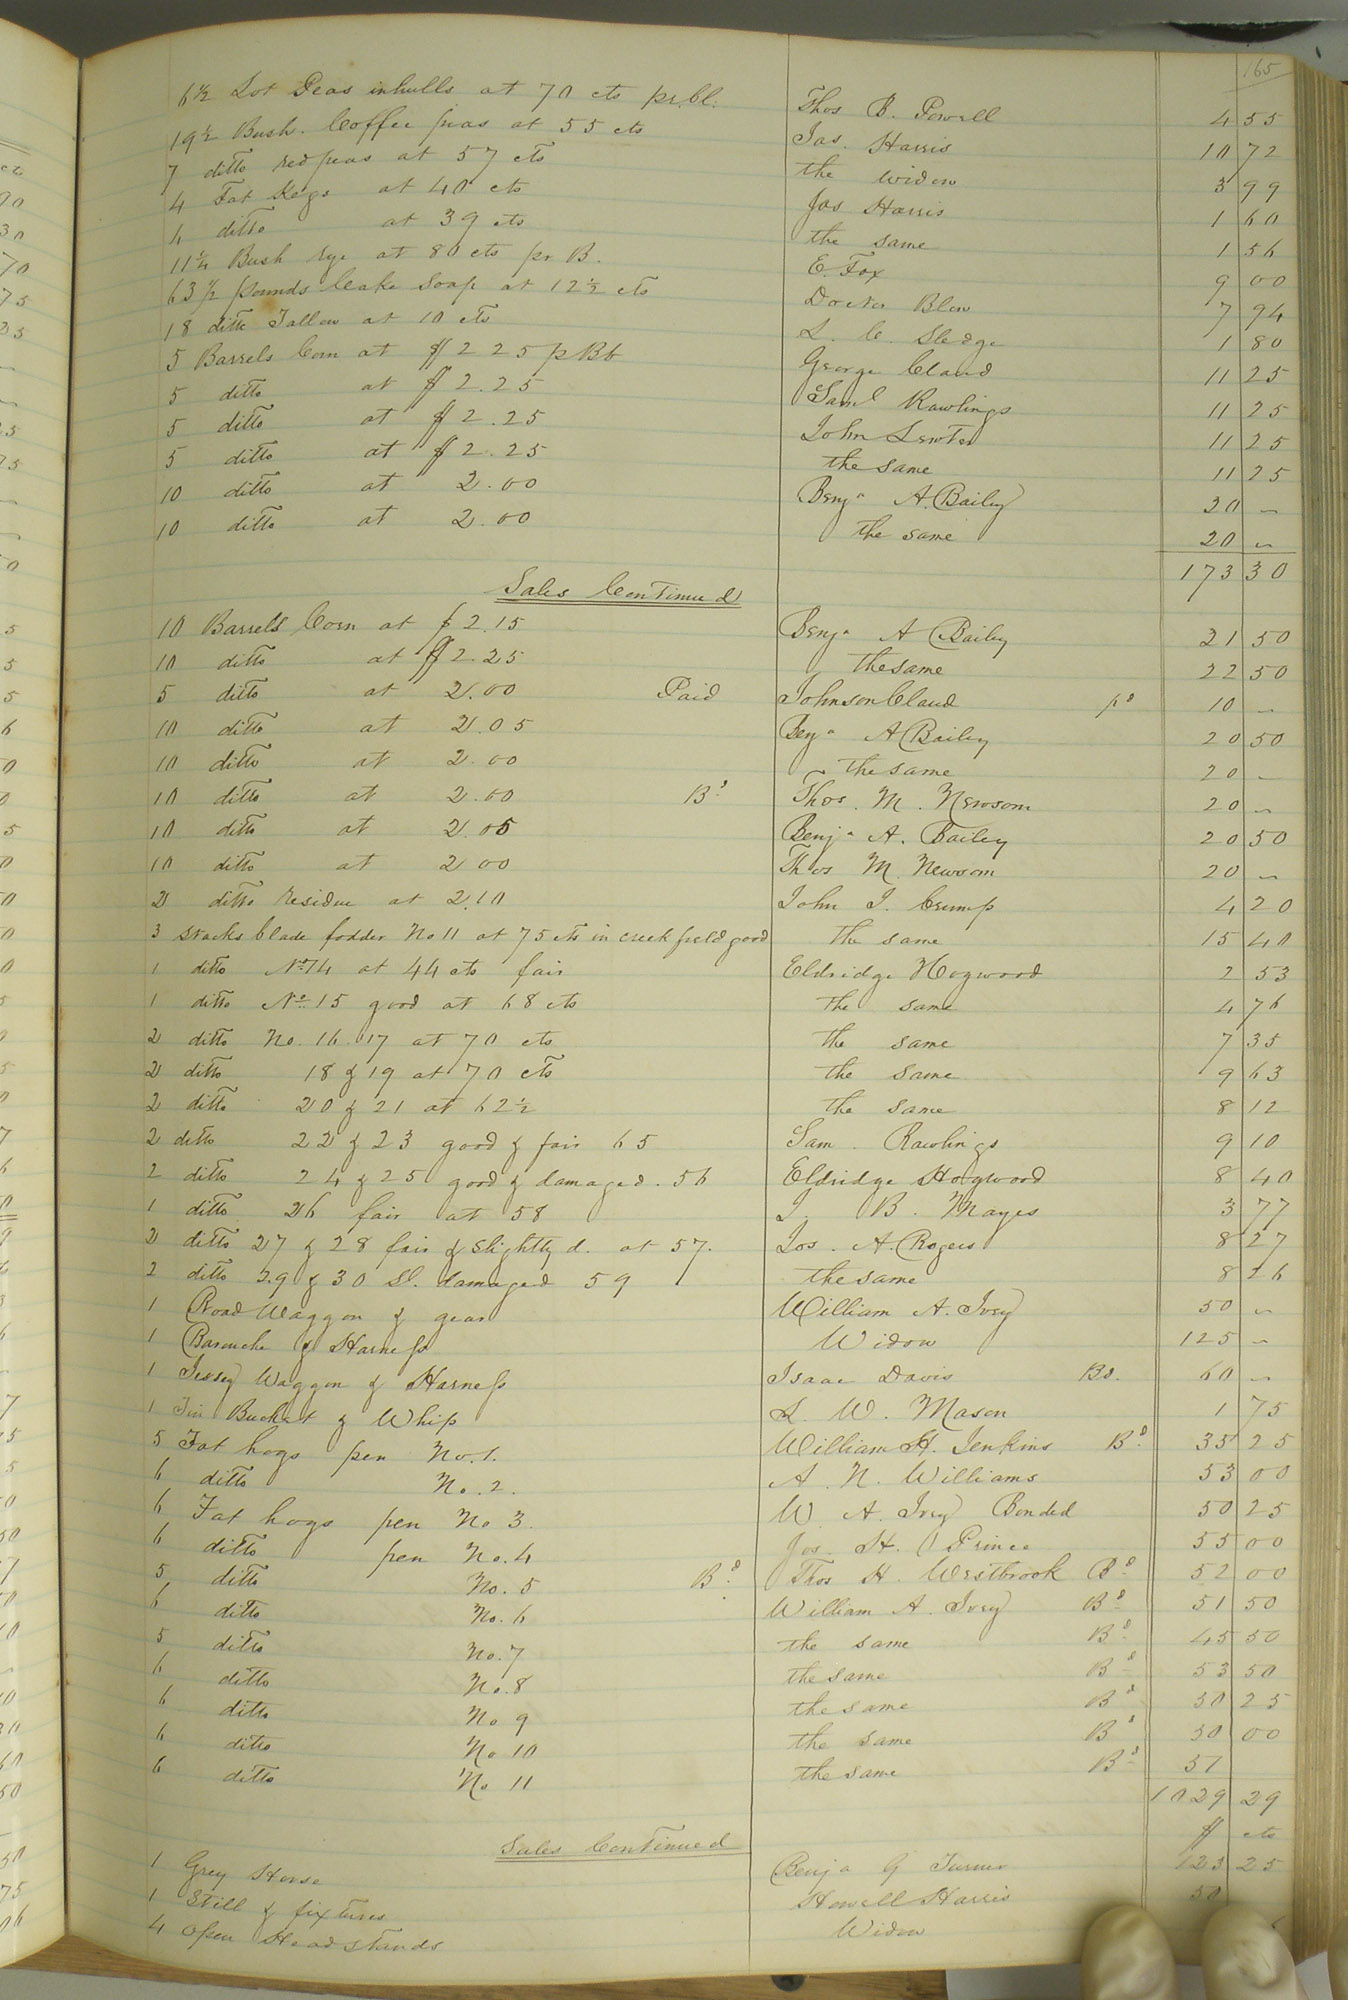 165
6½ Lot Peas inhulls at 70 cts pr.bl. Thos B. Powell 4 55
19½ Bush. Coffee peas at 55 cts Jas. Harris 10 72
7 ditto red peas at 57 cts the widow 3 99
4 Fat Kegs at 40 cts Jas Harris 1 60
4 ditto at 39 cts the same 1 56
11¼ Bush rye at 80 cts pr B. E. Fox 9 00
63½ pounds Cake Soap at 12½ cts Doctor Blow 7 94
18 ditto Tallow at 10 cts L. C. Sledge 1 80
5 Barrels Corn at $2 25 p Bb George Claud 11 25
5 ditto at $2.25 Saml Rawlings 11 25
5 ditto at $2.25 John Lewter 11 25
5 ditto at $2.25 the same 11 25
10 ditto at 2.00 Benja A. Bailey 20 –
10 ditto at 2.00 the same 20 –
173 30
Sales Continued
10 Barrels Corn at $2.15 Benja A Bailey 21 50
10 ditto at $2.25 the same 22 50
5 ditto at 2.00 Paid Johnson Claud pd 10 –
10 ditto at 2.05 Benja A Bailey 20 50
10 ditto at 2.00 the same 20 –
10 ditto at 2.00 Bd Thos. M. Newsom 20 –
10 ditto at 2.05 Benja A. Bailey 20 50
10 ditto at 2 00 Thos M. Newsom 20 –
2 ditto residue at 2.10 John J. Crump 4 20
3 stacks blade fodder No 11 at 75 cts in creek field good the same 15 40
1 ditto No 14 at 44 cts fair Eldridge Hogwood 2 53
1 ditto No 15 good at 68 cts the same 4 76
2 ditto No. 16.17 at 70 cts the same 7 35
2 ditto 18 & 19 at 70 cts the same 9 63
2 ditto 20 & 21 at 62½ the same 8 12
2 ditto 22 & 23 good & fair 65 Sam. Rawlings 9 10
2 ditto 24 & 25 good & damaged. 56 Eldridge Hogwood 8 40
1 ditto 26 fair at 58 J. B. Mayes 3 77
2 ditto 27 & 28 fair & slightly d. at 57. Jos. A. Rogers 8 27
2 ditto 29 & 30 Sl. damaged 59 the same 8 26
1 Road Waggon & gear William A. Ivey 50 –
1 Barouche & Harness Widow 125 –
1 Jersey Waggon & Harness Isaac Davis Bd. 60 –
1 Tin Bucket & Whip L. W. Mason 1 75
5 Fat hogs pen No. 1. William H. Jenkins Bd 35 25
6 ditto No. 2. A. N. Williams 53 00
6 Fat hogs pen No 3. W. A. Ivey Bonded 50 25
6 ditto pen No. 4 Jos. H. Prince 55 00
5 ditto No. 5 Bd Thos H. Westbrook Bd 52 00
6 ditto No. 6 William A. Ivey Bd 51 50
5 ditto No. 7 the same Bd 45 50
6 ditto No. 8 the same Bd 53 50
6 ditto No 9 the same Bd 50 25
6 ditto No 10 the same Bd 50 00
6 ditto No 11 the same Bd 51
1029 29
$ cts
Sales Continued
1 Grey Horse Benja G Turner 123 25
1 Still & fixtures Howell Harris 50
4 Open Head stands Widow